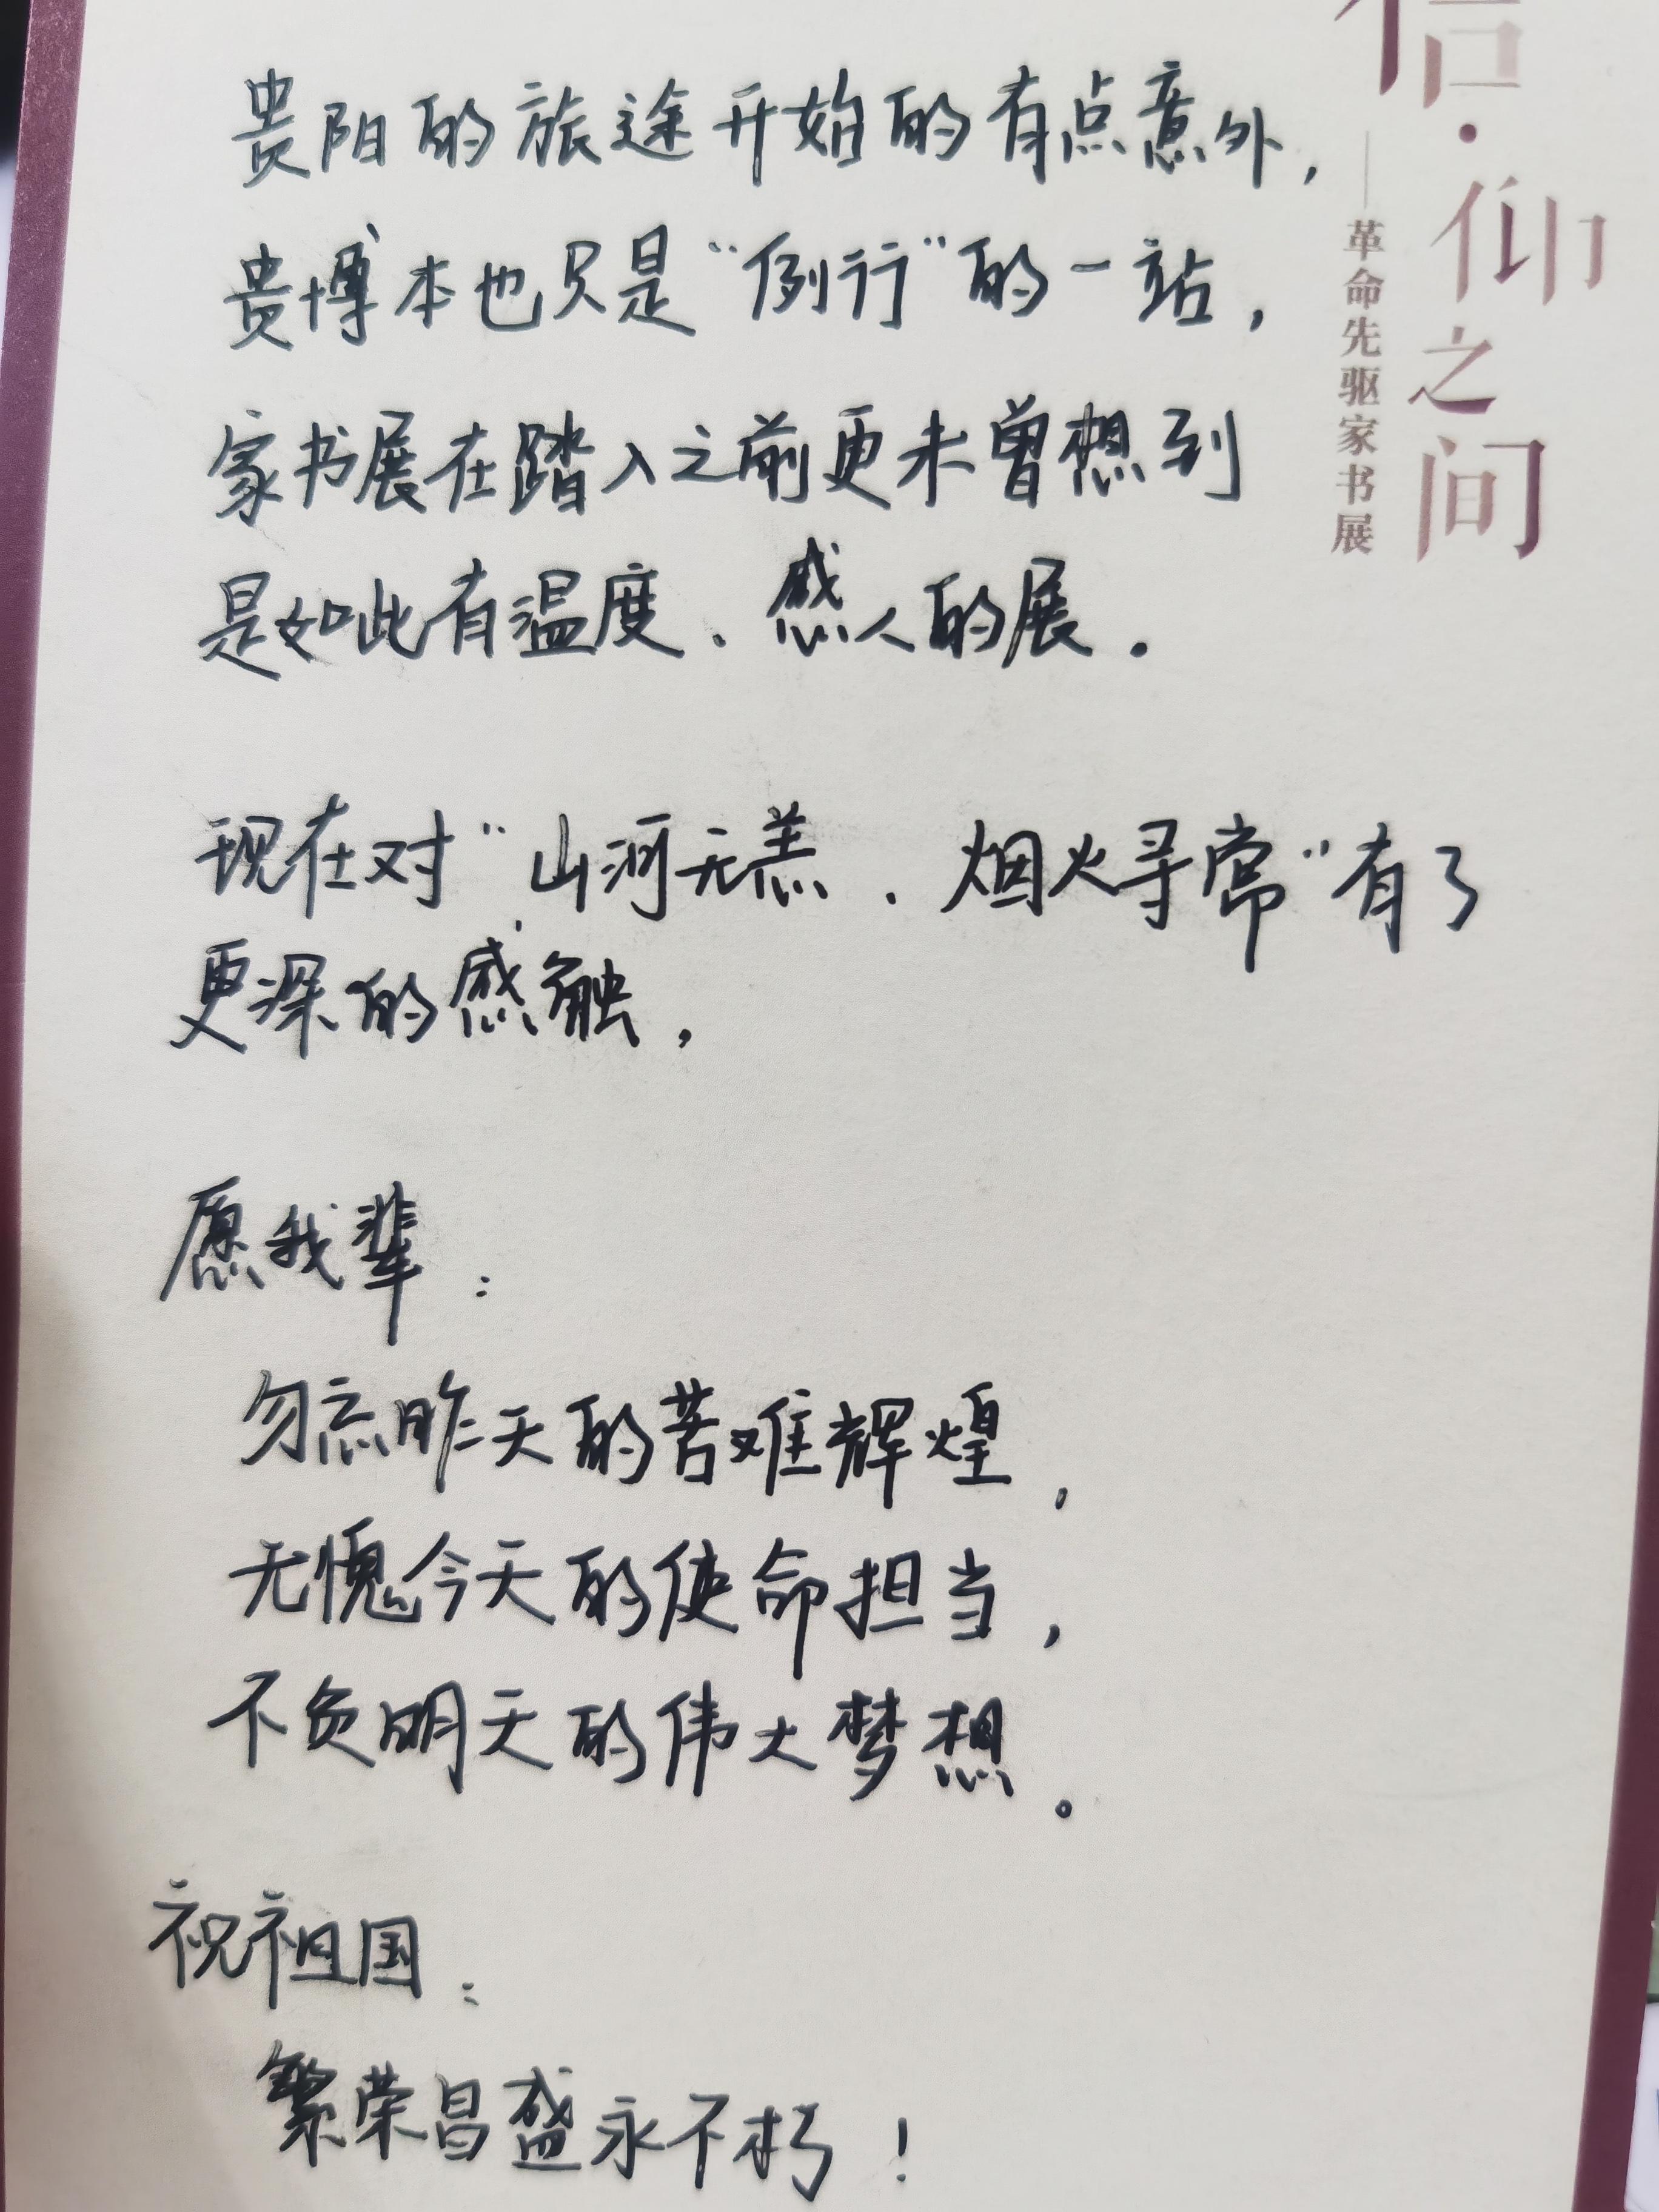 信·仰之间
——革命先驱家书展
贵阳的旅途开始的有点意外,
贵博本也只是“例行”的一站,
家书展在踏入之前更未曾想到
是如此有温度、感人的展.
现在对“山河无恙、烟火寻常”有了
更深的感触,
愿我辈:
勿忘昨天的苦难辉煌,
无愧今天的使命担当,
不负明天的伟大梦想。
祝祖国:
繁荣昌盛永不朽!